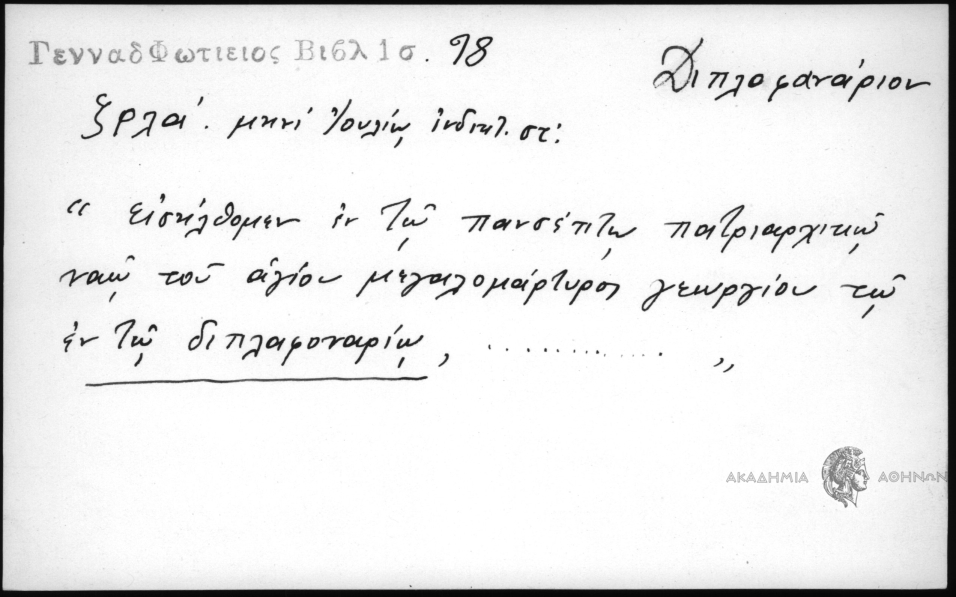 ΓενναδΦωτιειος Βιβλ 1 σ. 98
Διπλοφανάριον
ζρλα΄. μηνί Ἰουλίῳ ἰνδικτ. στ:
“ εἰσήλθομεν ἐν τῷ πανσέπτῳ πατριαρχικῷ
ναῷ τοῦ ἁγίου μεγαλομάρτυρος γεωργίου τῷ
ἐν τῷ διπλαφοναρίῳ, ............. „
ΑΚΑΔΗΜΙΑ ΑΘΗΝΩΝ